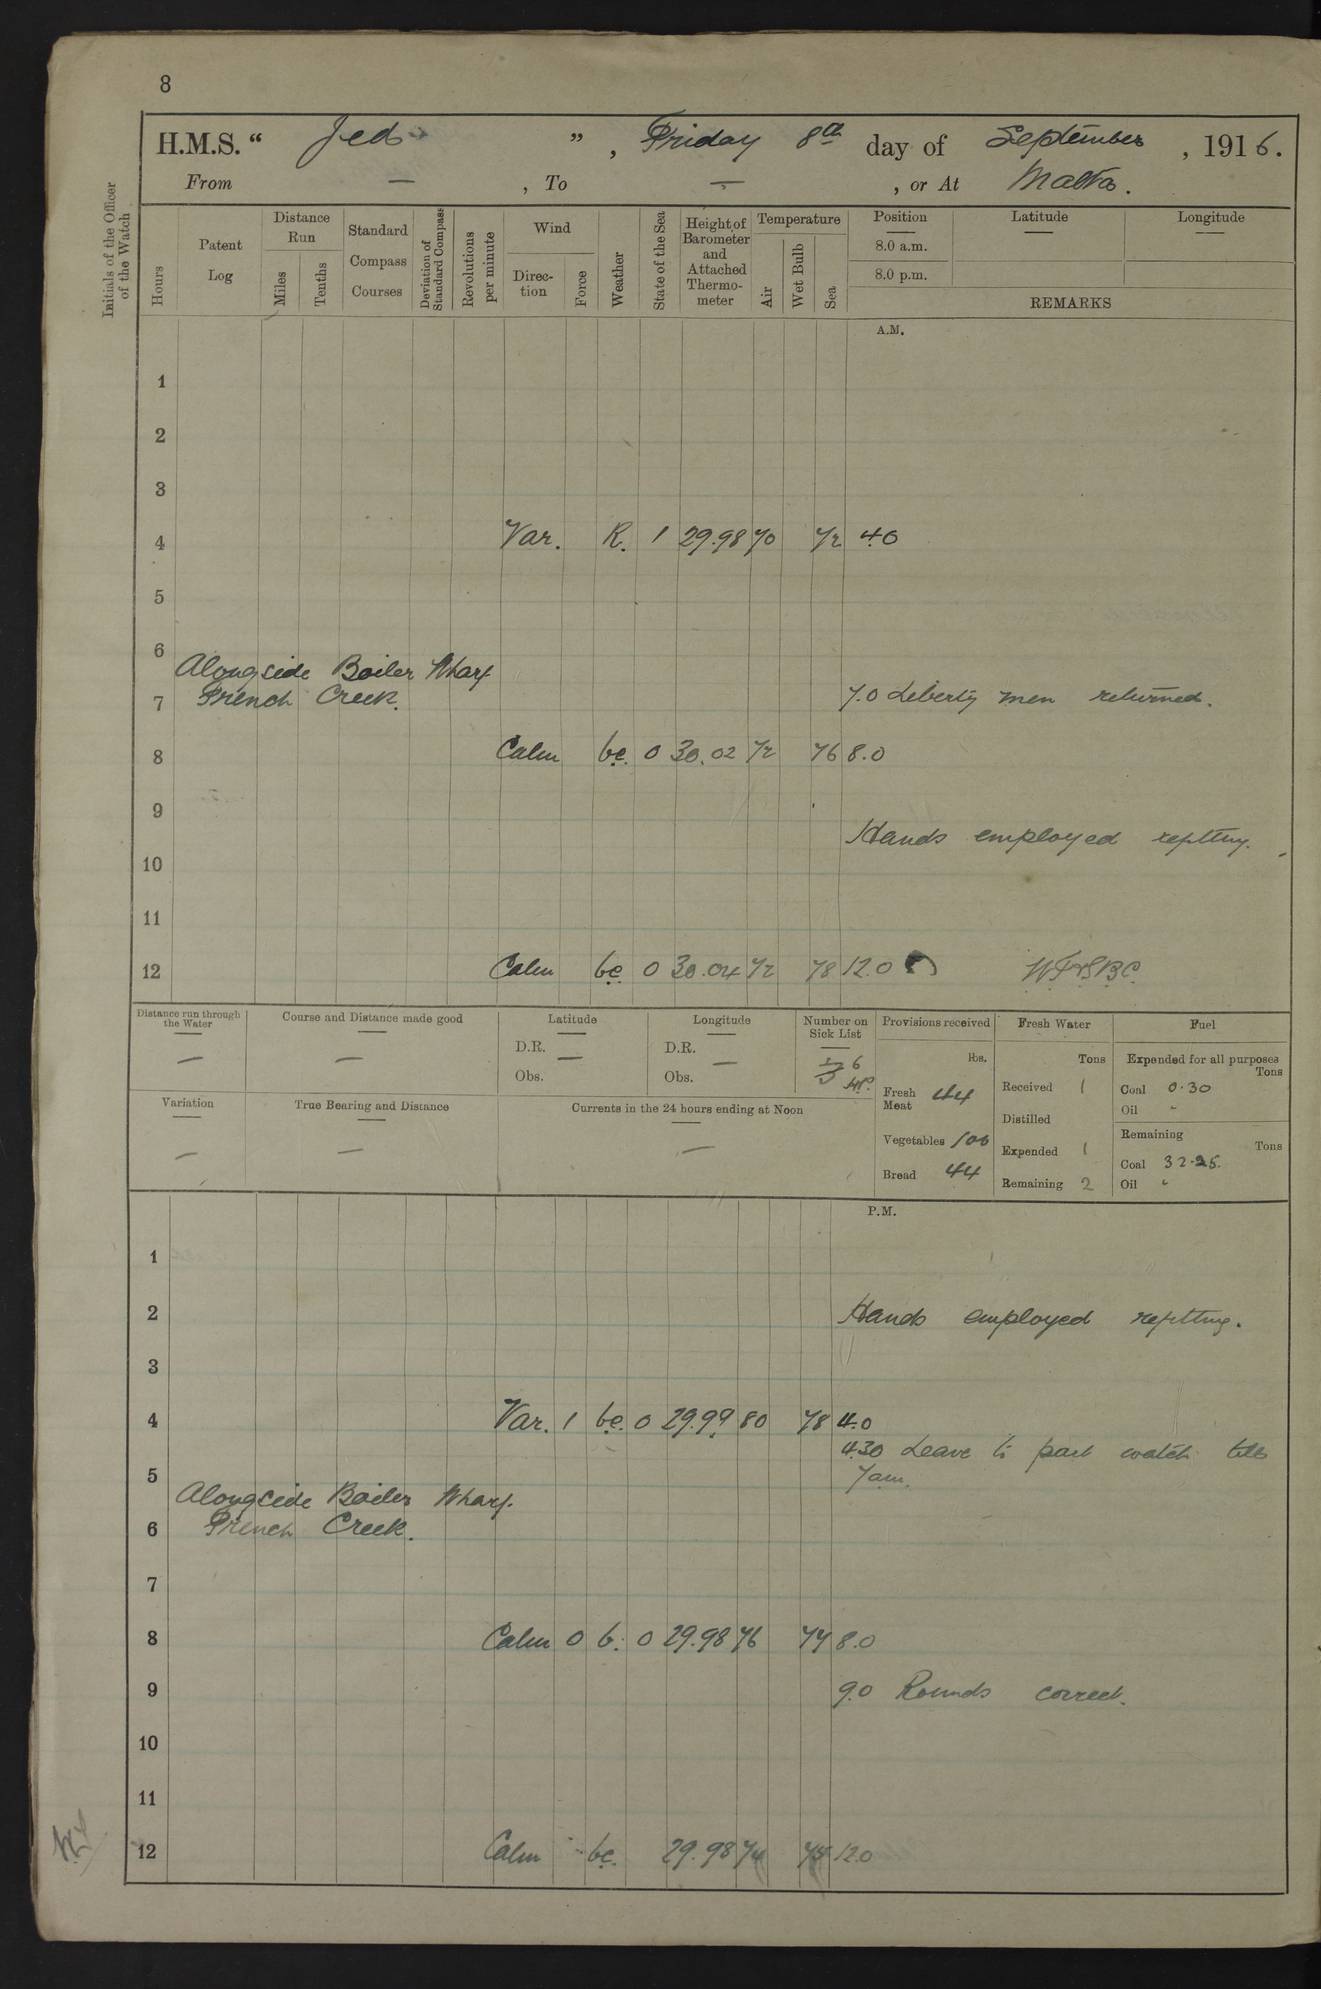 8
H.M.S. “ Jed ” , Friday 8th day of September , 1916.
From — , To — , or At Malta.
Initials of the Officer of the Watch
Hours
Patent Log
Distance Run
Miles
Tenths
Standard Compass Courses
Deviation of Standard Compass
Revolutions per minute
Wind
Direction
Force
Weather
State of the Sea
Height of Barometer and Attached Thermometer
Temperature
Air
Wet Bulb
Sea
Position
8.0 a.m.
8.0 p.m.
Latitude
Longitude
REMARKS
A.M.
1
2
3
4 Var. R. 1 29.98 70 72 4.0
5
6
Alongside Boiler Wharf
7 French Creek. 7.0 Liberty men returned.
8 Calm bc. 0 30.02 72 76 8.0
9
Hands employed refitting.
10
11
12 Calm bc 0 30.04 72 78 12.0
Distance run through the Water —
Course and Distance made good —
Latitude
D.R. —
Obs.
Longitude
D.R. —
Obs.
Number on Sick List
Provisions received
lbs.
Fresh Meat 44
Vegetables 100
Bread 44
Fresh Water
Tons
Received 1
Distilled
Expended 1
Remaining 2
Fuel
Expended for all purposes
Tons
Coal 0.30
Oil "
Remaining
Tons
Coal 32.25.
Oil "
Variation —
True Bearing and Distance —
Currents in the 24 hours ending at Noon —
P.M.
1
2 Hands employed refitting.
3
4 Var. 1 bc. 0 29.99 80 78 4.0
4.30 Leave to part watch till
5 7am.
Alongside Boiler Wharf.
6 French Creek.
7
8 Calm 0 b. 0 29.98 76 77 8.0
9 9.0 Rounds correct.
10
11
12 Calm bc. 29.98 74 75 12.0